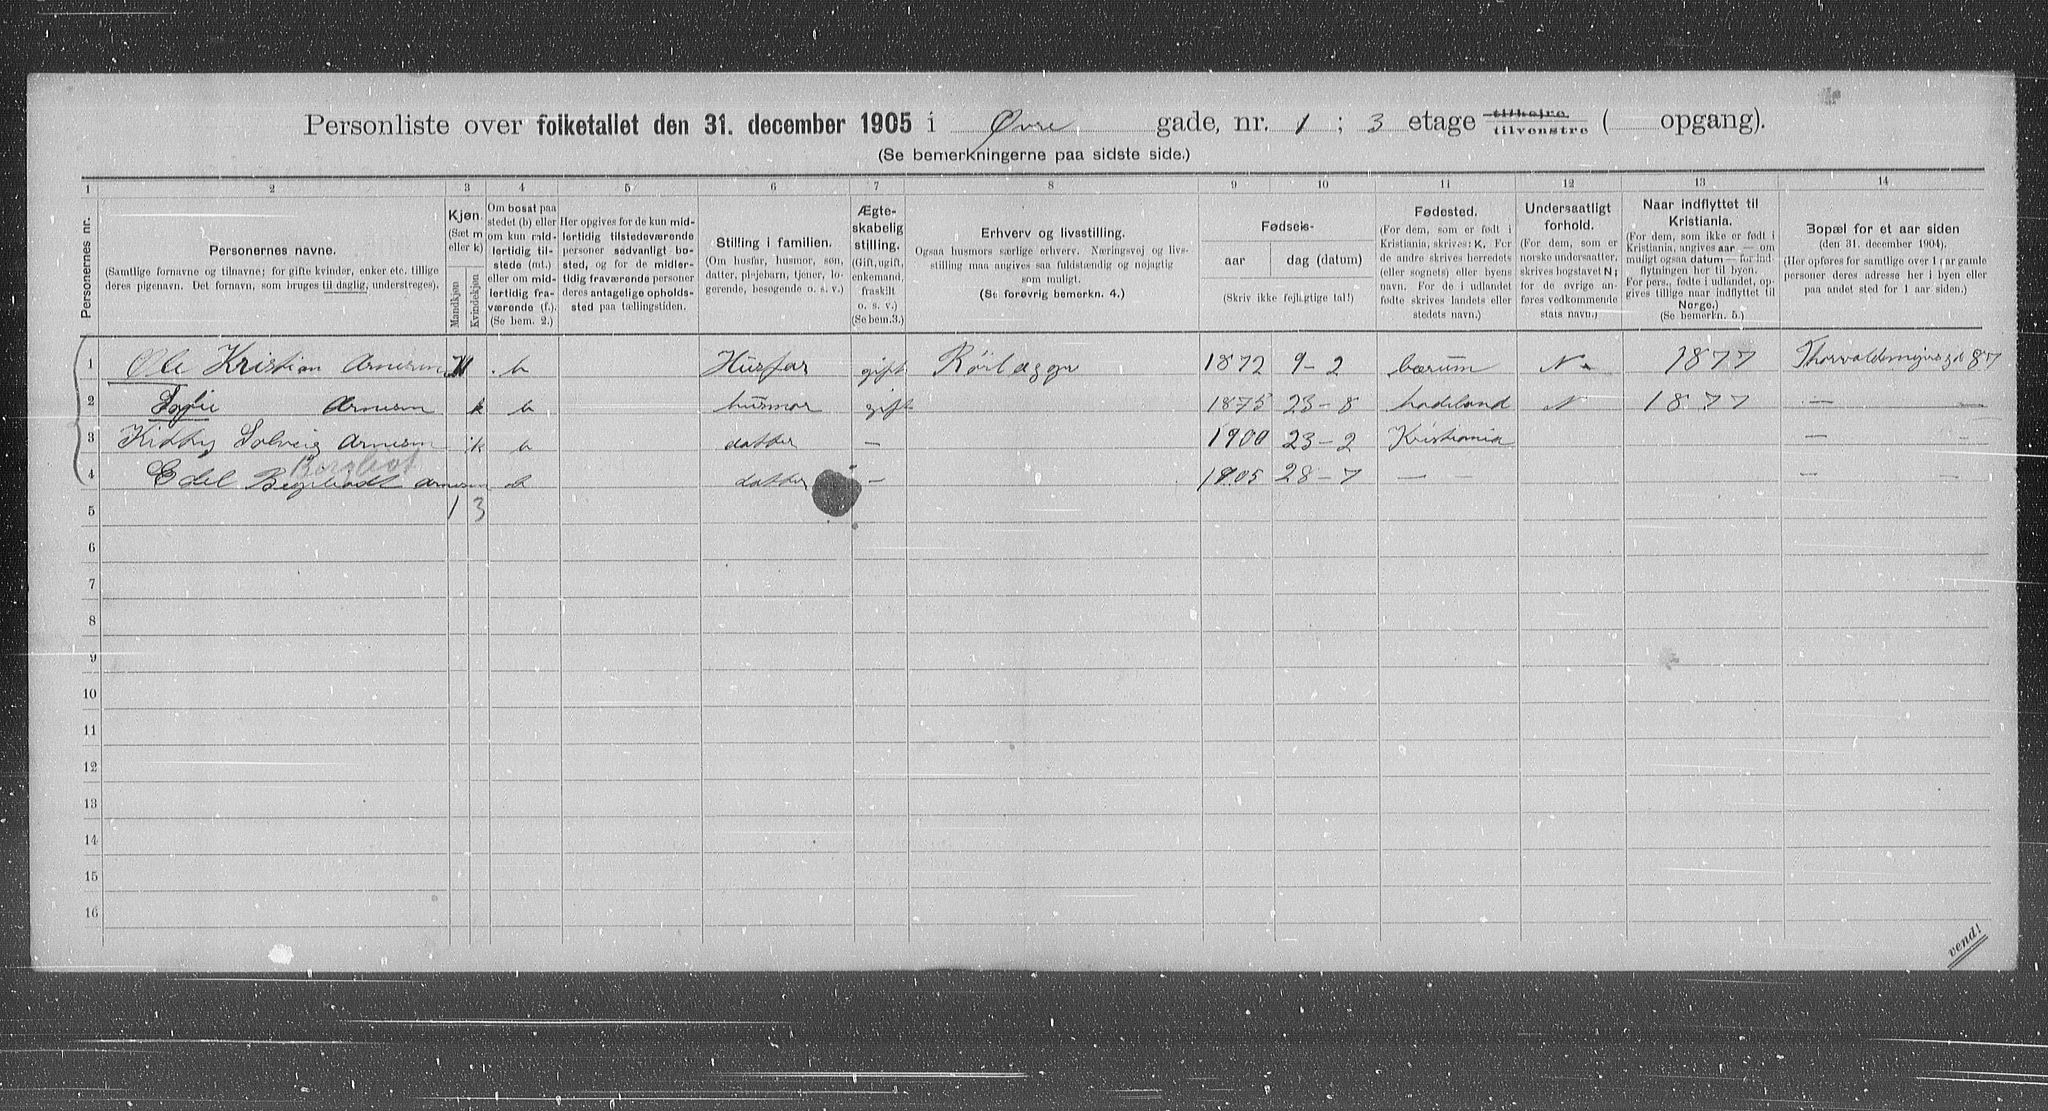 Personliste over folketallet den 31. december 1905 i Øvre gade, nr. 1 ; 3 etage tilhøjre tilvenstre ( opgang).
(Se bemerkningerne paa sidste side.)
1 2 3 4 5 6 7 8 9 10 11 12 13 14
Personernes nr.
Personernes navne.
(Samtlige fornavne og tilnavne; for gifte kvinder, enker etc. tillige deres pigenavn. Det fornavn, som bruges til daglig, understreges).
Kjøn.
(Sæt m eller k)
Mandkjøn
Kvindekjøn
Om bosat paa stedet (b) eller om kun midlertidig tilstede (mt.) eller om midlertidig fraværende (f.).
(Se bem. 2.)
Her opgives for de kun midlertidig tilstedeværende personer sedvanligt bosted, og for de midlertidig fraværende personer deres antagelige opholdssted paa tællingstiden.
Stilling i familien.
(Om husfar, husmor, søn, datter, plejebarn, tjener, logerende, besøgende o. s. v.)
Ægteskabelig stilling.
(Gift, ugift, enkemand, fraskilt o. s. v.)
(Se bem.3.)
Erhverv og livsstilling.
Ogsaa husmors særlige erhverv. Næringsvej og livsstilling maa angives saa fuldstændig og nøjagtig som muligt.
(Se forøvrig bemerkn. 4.)
Fødsels-
aar dag (datum)
(Skriv ikke fejlagtige tal!)
Fødested.
(For dem, som er født i Kristiania, skrives: K. For de andre skrives herredets (eller sognets) eller byens navn. For de i udlandet fødte skrives landets eller stedets navn.)
Undersaatligt forhold.
(For dem, som er norske undersaatter, skrives bogstavet N; for de øvrige anføres vedkommende stats navn.)
Naar indflyttet til Kristiania.
(For dem, som ikke er født i Kristiania, angives aar — om muligt ogsaa datum — for indflytningen her til byen. For pers., fødte i udlandet, opgives tillige naar indflyttet til Norge.)
(Se bemerkn. 5.)
Bopæl for et aar siden
(den 31. december 1904).
(Her opføres for samtlige over 1 aar gamle personer deres adresse her i byen eller paa andet sted for 1 aar siden.)
1 Ole Kristian Arnesen M b Husfar gift Rörlægger 1872 9-2 bærum N. 1877 Thorvaldsmejersgd 87
2 Sofie Arnesen k b husmor gift 1875 23-8 hadeland N 1877 —
3 Kitty Solveig Arnesen k b datter — 1900 23-2 Kristiania — -
4 Edel Arnesen b datter — 1905 28-7 — — — —
Bergliot
5 1 3
6
7
8
9
10
11
12
13
14
15
16
vend!